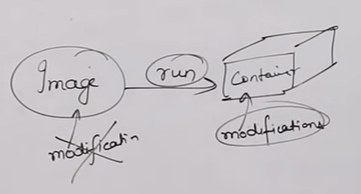 Image
run
Contain
modification
modifications